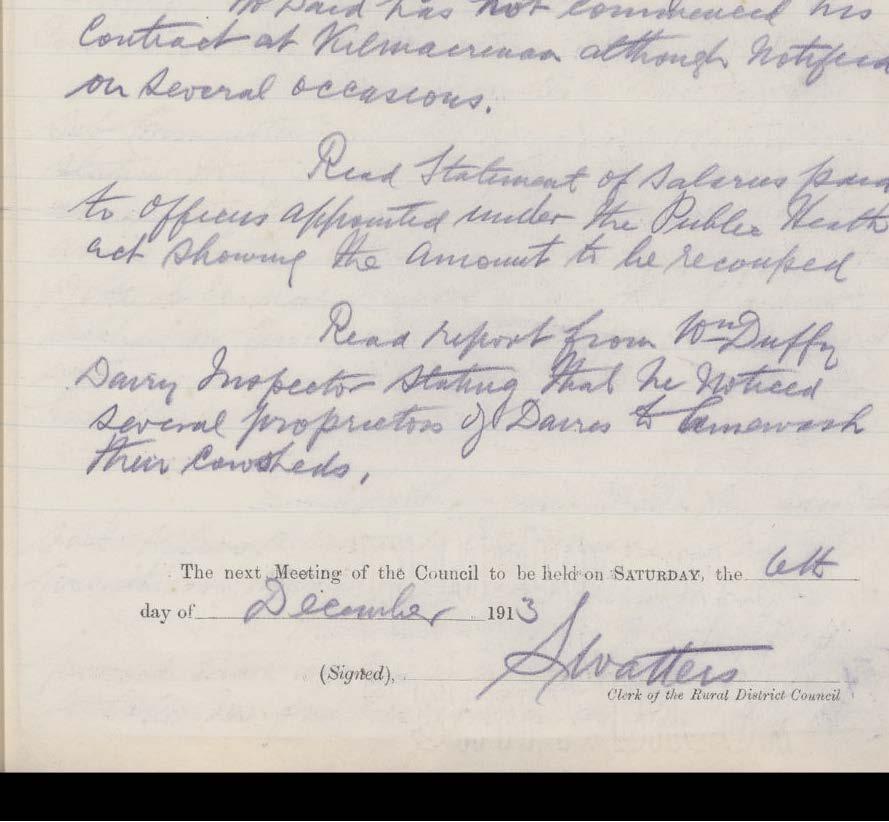 has not commenced his
Contract at Kilmacrenan although Notified
on several occasions.
Read Statement of Salaries paid
to Officers appointed under the Public Health
act showing the amount to be recouped
Read report from Wm Duffy
Dairy Inspector stating that he Noticed
several proprietors of Dairies to limewash
their cowsheds.
The next Meeting of the Council to be held on SATURDAY, the 6th
day of December 1913
(Signed), S Watters
Clerk of the Rural District Council